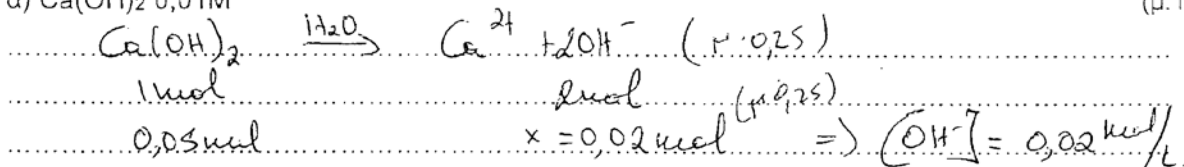 a) Ca(OH)₂ 0,01M (μ.1
Ca(OH)₂ →(H₂O) Ca²⁺ + 2OH⁻ (μ.0,25)
1mol 2mol (μ.0,25)
0,05mol x = 0,02mol => [OH⁻] = 0,02 mol/L